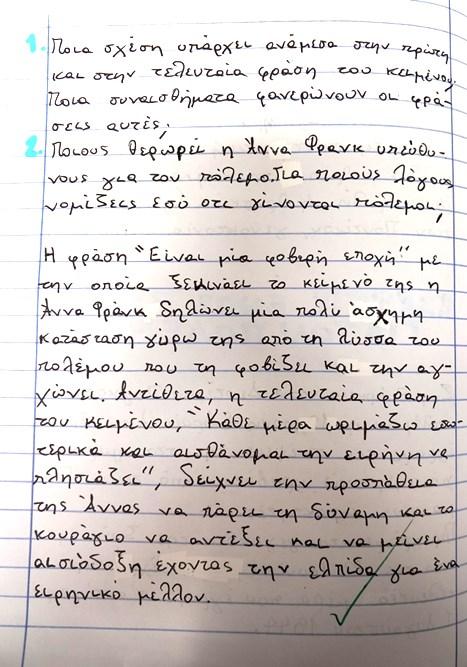 1. Ποια σχέση υπάρχει ανάμεσα στην πρώτη
και στην τελευταία φράση του κειμένου;
Ποια συναισθήματα φανερώνουν οι φρά-
σεις αυτές;
2. Ποιους θεωρεί η Άννα Φρανκ υπεύθυ-
νους για τον πόλεμο. Για ποιούς λόγους
νομίζεις εσύ οτι γίνονται πόλεμοι;
Η φράση "Είναι μία φοβερή εποχή" με
την οποία ξεκινάει το κείμενό της η
Άννα Φράνκ δηλώνει μία πολύ άσχημη
κατάσταση γύρω της από τη λύσσα του
πολέμου που τη φοβίζει και την αγ-
χώνει. Αντίθετα, η τελευταία φράση
του κειμένου, "Κάθε μέρα ωριμάζω εσω-
τερικά και αισθάνομαι την ειρήνη να
πλησιάζει", δείχνει την προσπάθεια
της Άννας να πάρει τη δύναμη και το
κουράγιο να αντέξει και να μείνει
αισιόδοξη έχοντας την ελπίδα για ένα
ειρηνικό μέλλον.